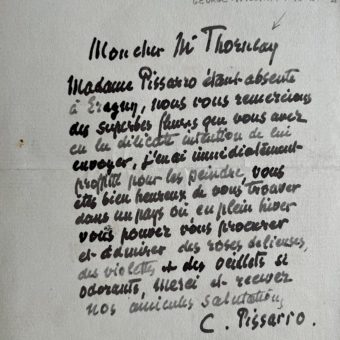 Mon cher Mr Thornley
Madame Pissarro étant absente
à Eragny, nous vous remercions
des superbes fleurs que vous avez
eu la délicate intention de lui
envoyer, j'en ai immédiatement
profité pour les peindre, vous
êtes bien heureux de vous trouver
dans un pays où en plein hiver
vous pouvez vous procurer
et admirer des roses délicieuses,
des violettes et des oeillets si
odorants, merci et recevez
nos amicales salutations
C. Pissarro.